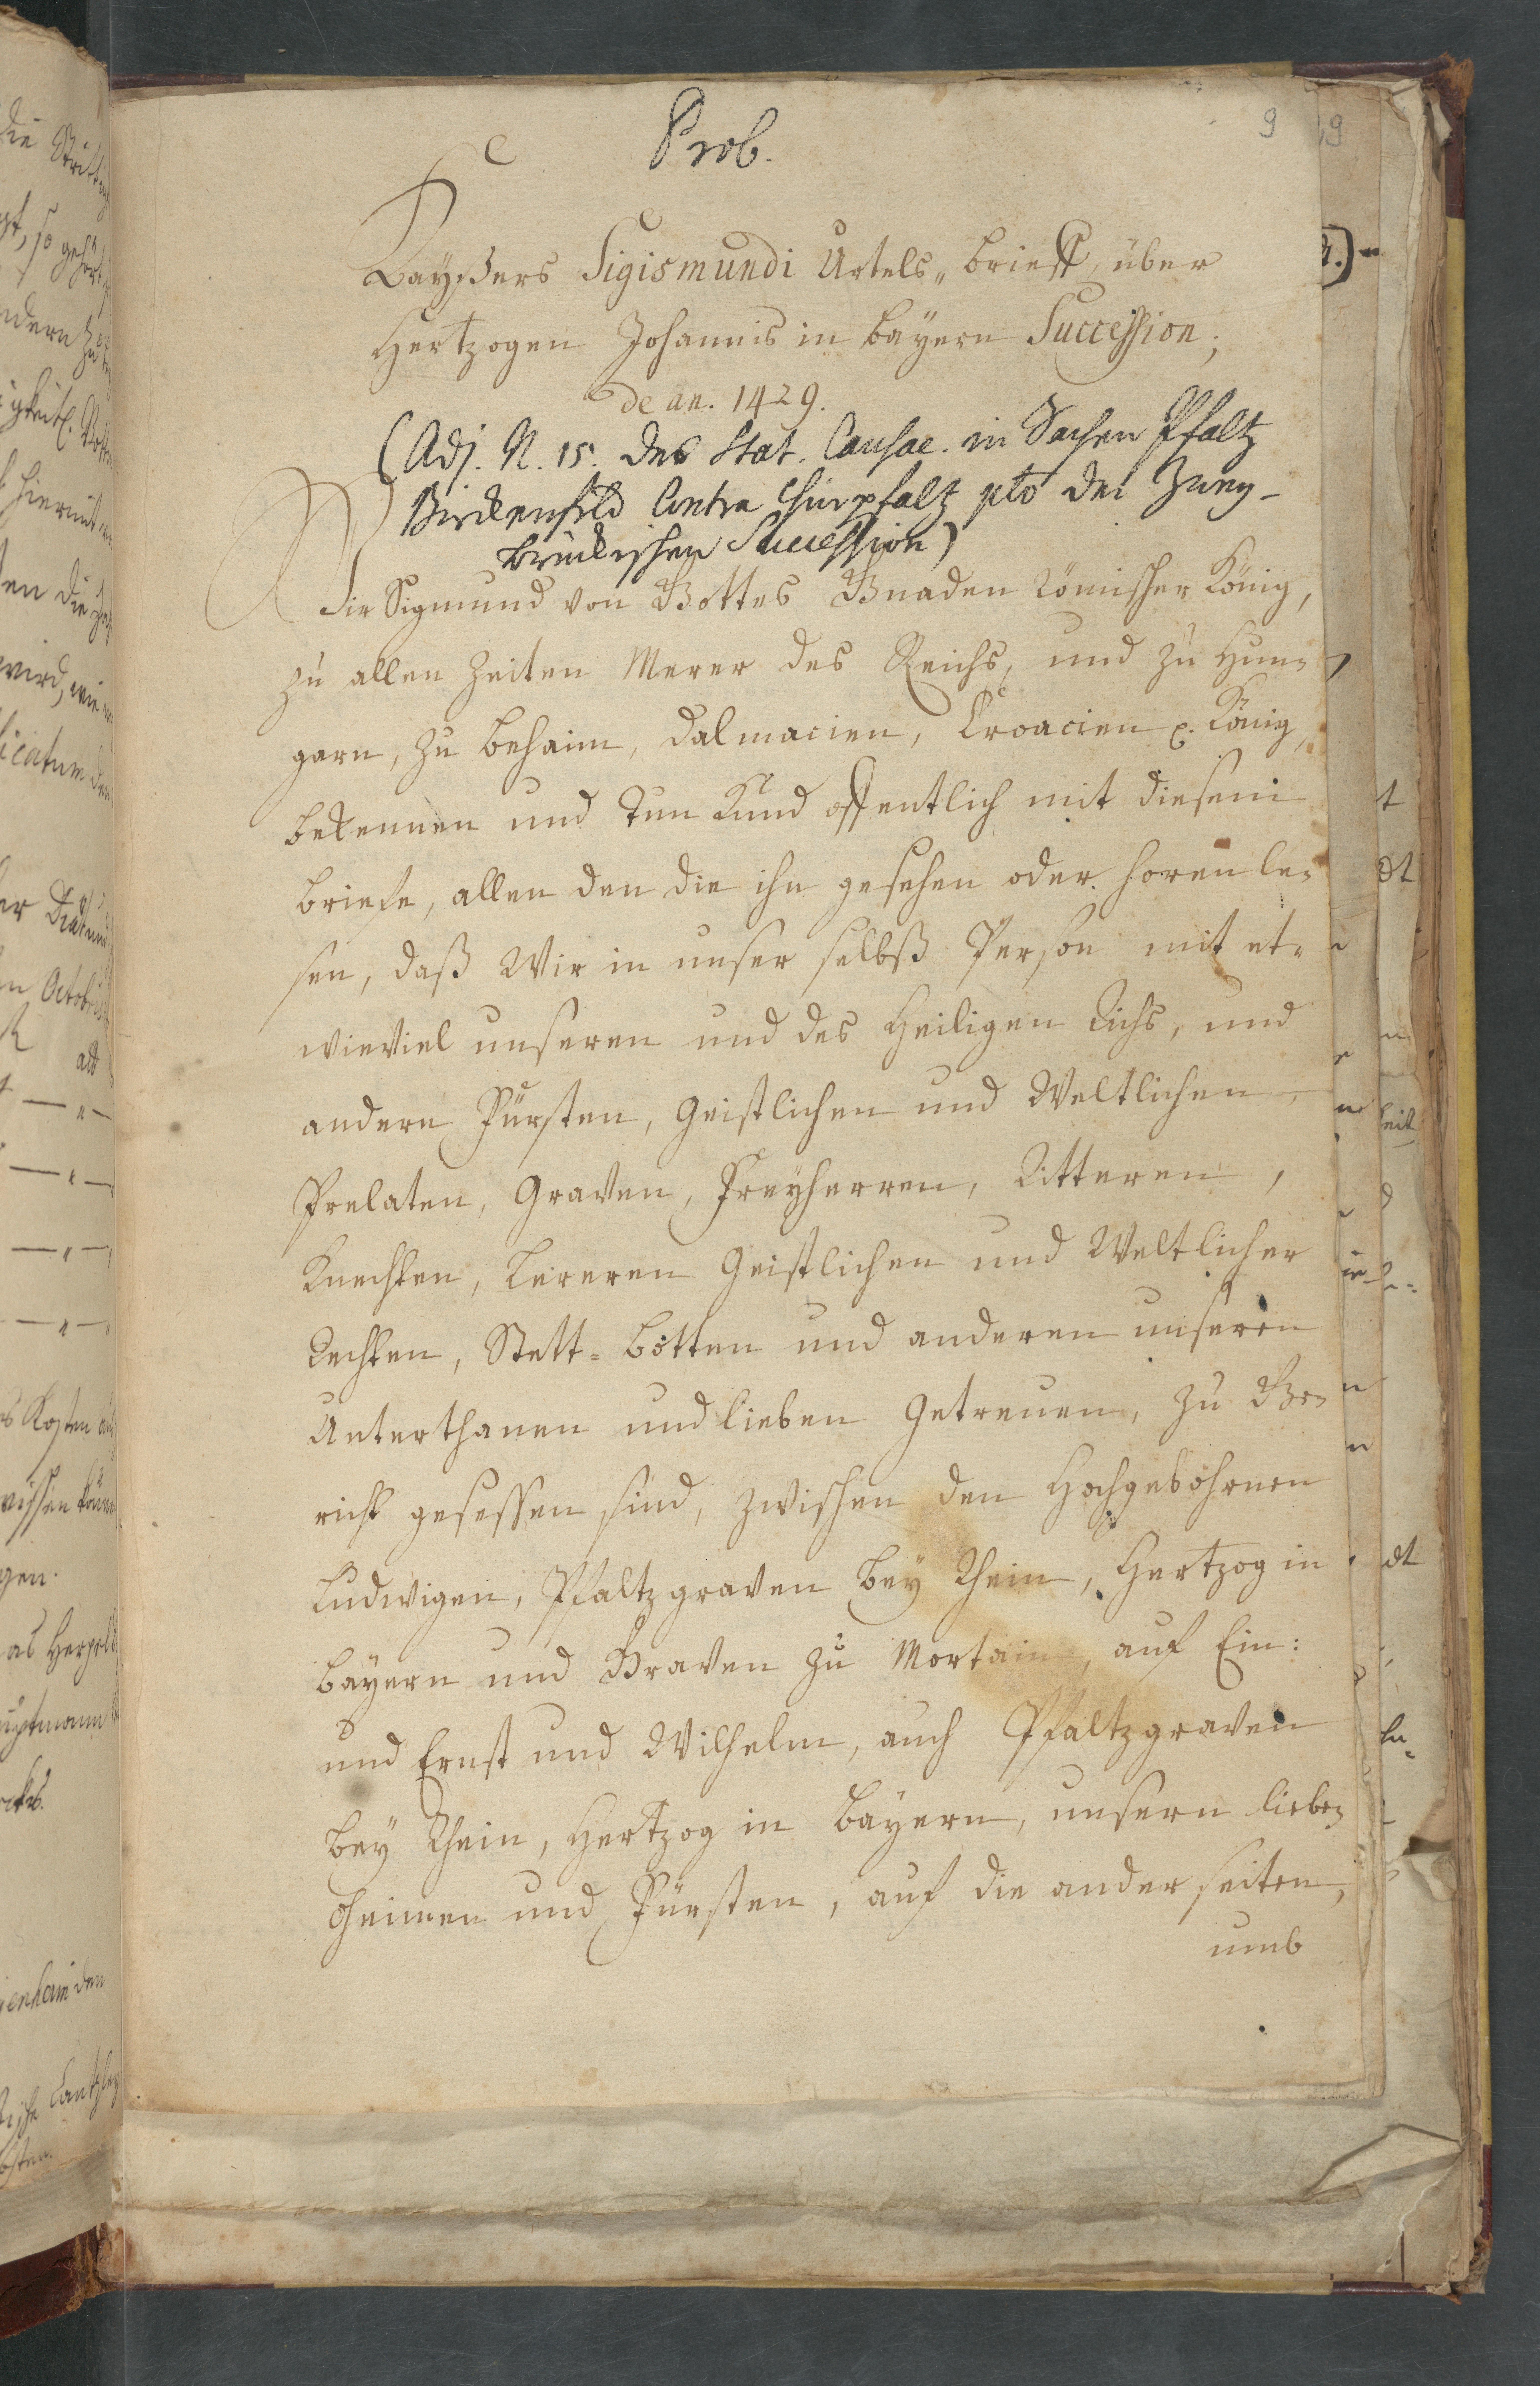 9
Prob.
Kayßers Sigismundi Urtels„brieff, über
Hertzogen Johannis in Bayern Succession;
de an. 1429.
(Adj. N. 15. des Stat. Causae. in Sachen Pfaltz
Birckenfeld Contra Churpfaltz pto der Zwey-
brückischen Succession)
Wir Sigmund von Gottes Gnaden Römischer König,
zu allen Zeiten Merer des Reichs, und zu Hun-
garn, zu Behaim, Dalmacien, Croacien p. König,
bekennen und tun kund offentlich mit diesem
briefe, allen den die ihn gesehen oder horen le-
sen, daß Wir in unser selbß Person mit et-
wieviel unseren und des Heiligen Richs, und
andern Fürsten, Geistlichen und Weltlichen,
Prelaten, Graven, Freyherren, Ritteren,
Knechten, Lereren Geistlichen und Weltlicher
Rechten, Stett-Botten und anderen unseren
Unterthanen und lieben Getreuen, zu Ge-
richt gesessen sind, zwischen den Hochgebohrnen
Ludwigen, Pfaltzgraven bey Rhein, Hertzog in
Bayern und Graven zu Mortain, auf Ein:
und Ernst und Wilhelm, auch Pfaltzgraven
bey Rhein, Hertzog in Bayern, unsern lieben
Oheimen und Fürsten, auf die ander seiten,
umb